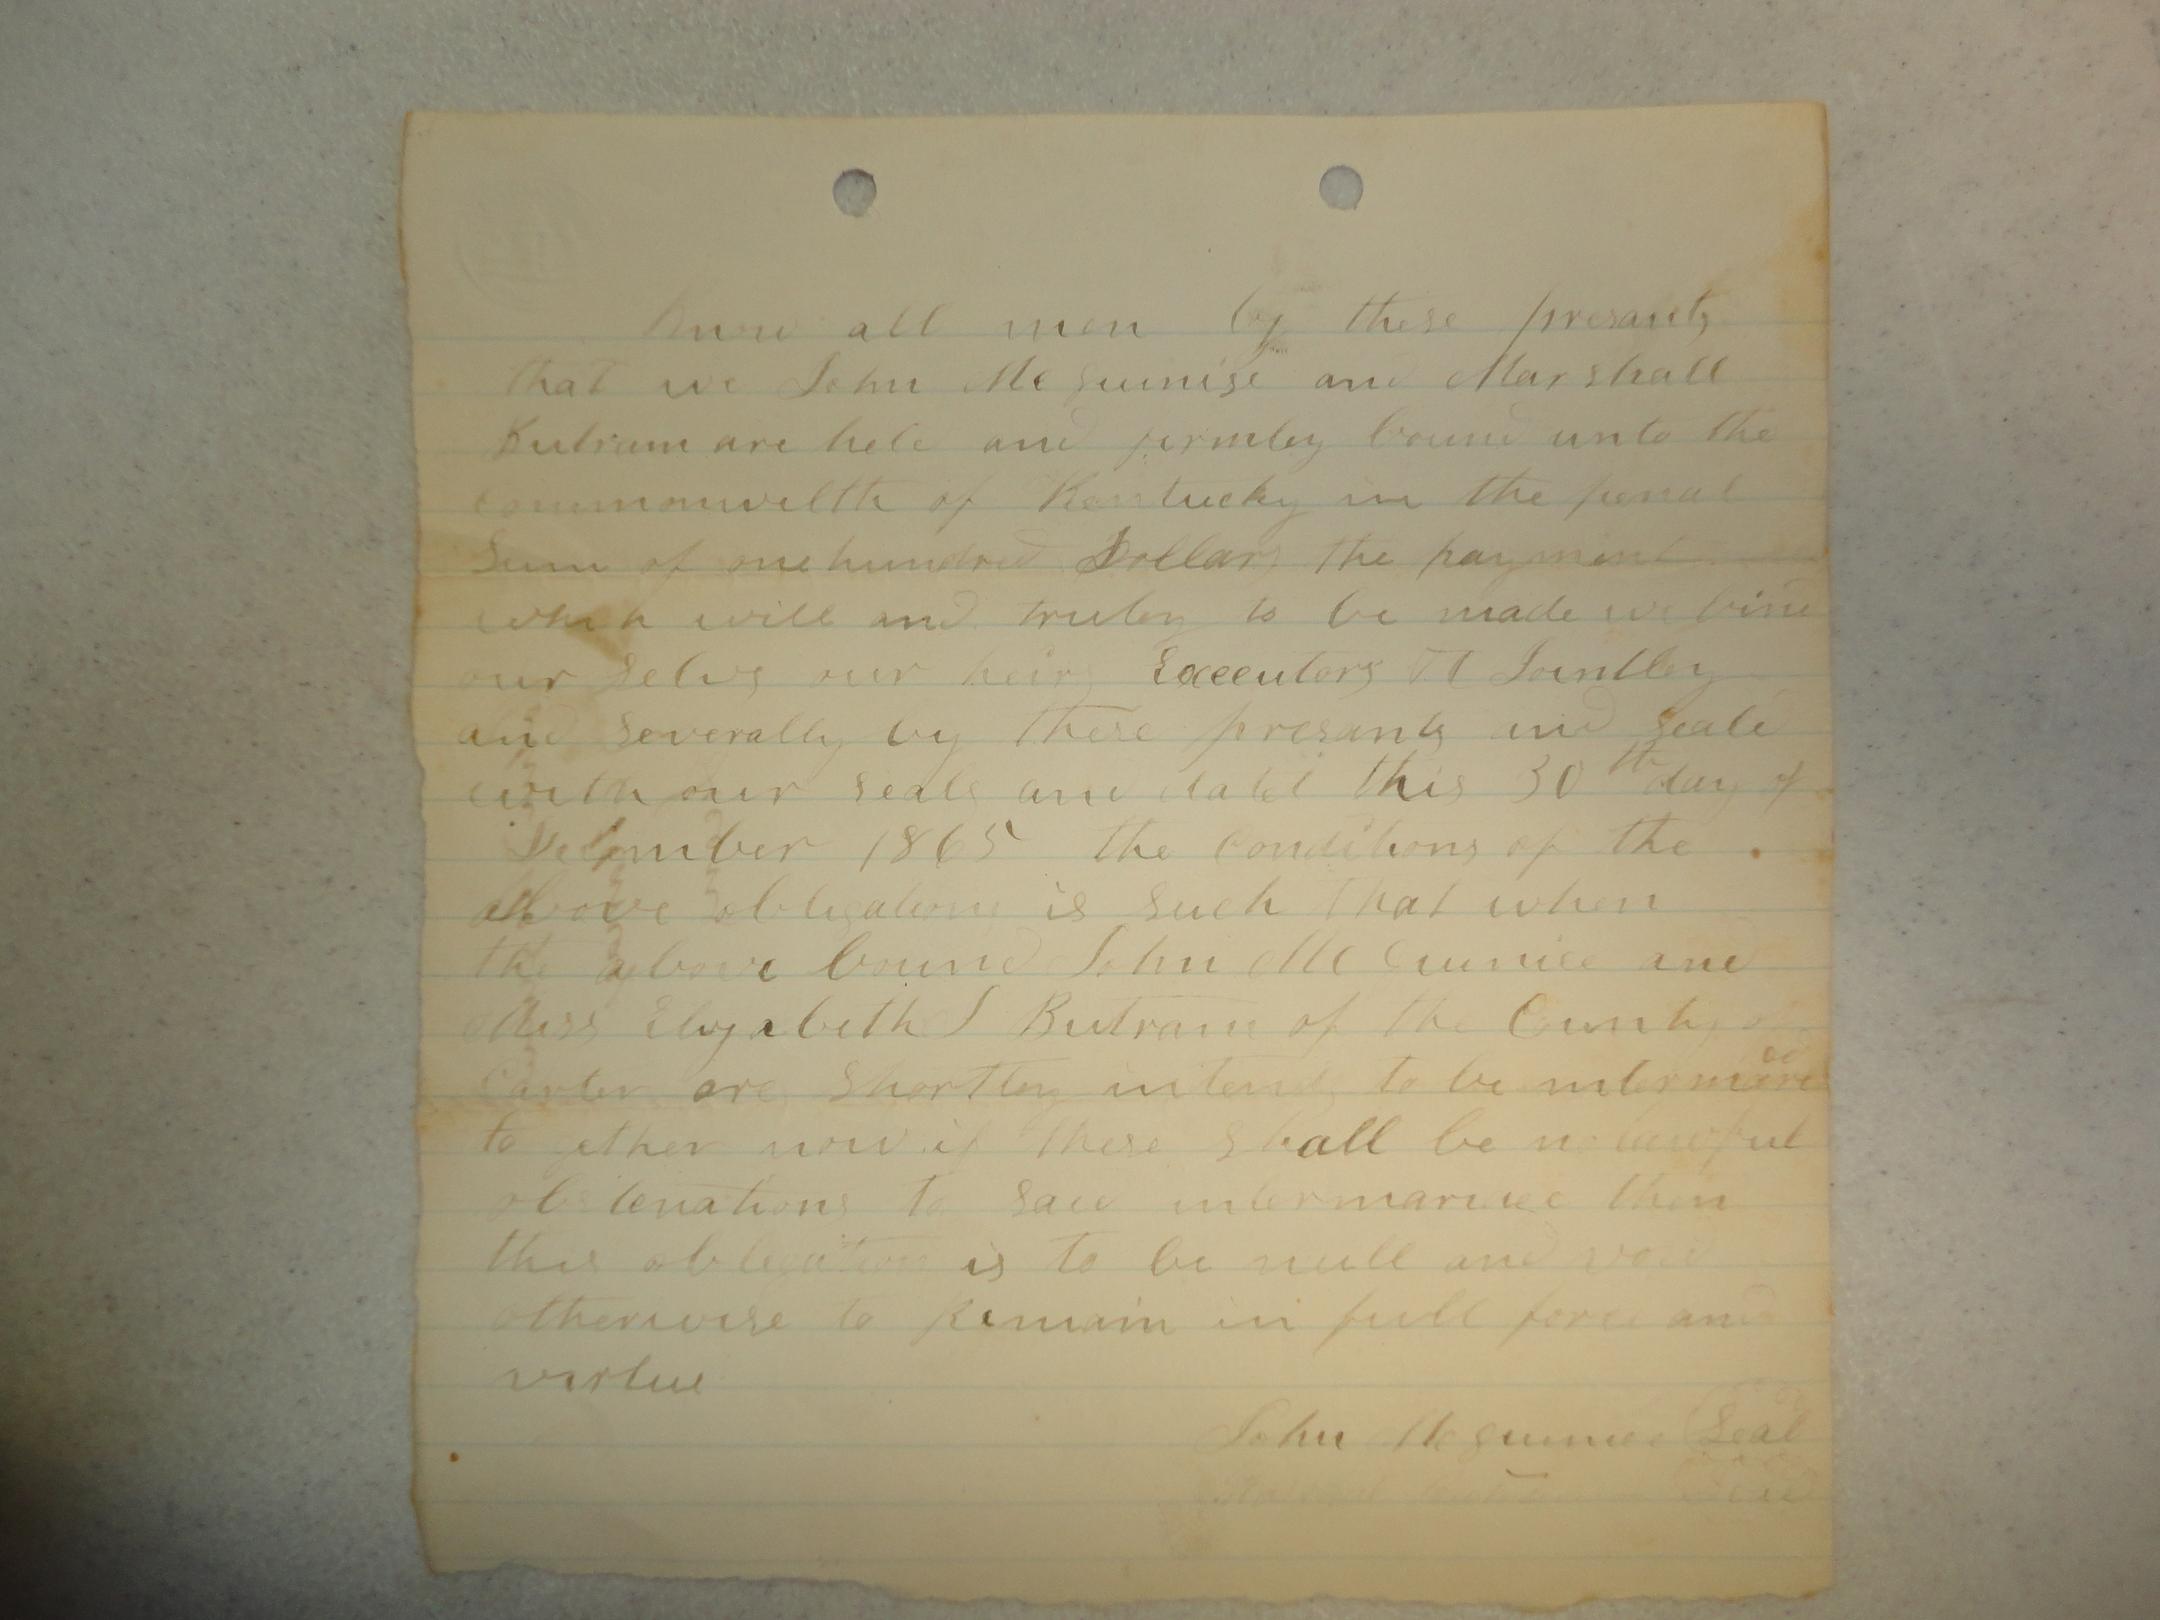 Know all men by these presants
that we John McGuinise and Marshall
Butram are held and firmley bound unto the
commonwelth of Kentucky in the penal
Sum of one hundred Dollars the payment
which will and truley to be made we bind
our selvs our heirs Executors Jointley
and severally by these presants and seald
with our seals and dated this 30th day of
December 1865 the conditions of the
above obligations is such that when
the above bound John McGuinice and
Miss Elyzabeth J Butram of the County of
Carter are Shortley intends to be intermared
to gether now if there shall be no lawful
obstenations to said intermariuee then
this obligation is to be null and void
otherwise to Remain in full force and
virtue
John McGuinice Seal
Seal